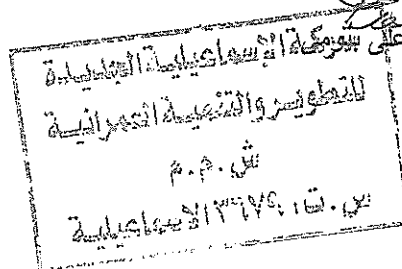 شركة الإسماعيلية الجديدة
للتطوير والتنمية العمرانية
ش.م.م
س.ت. الإسماعيلية